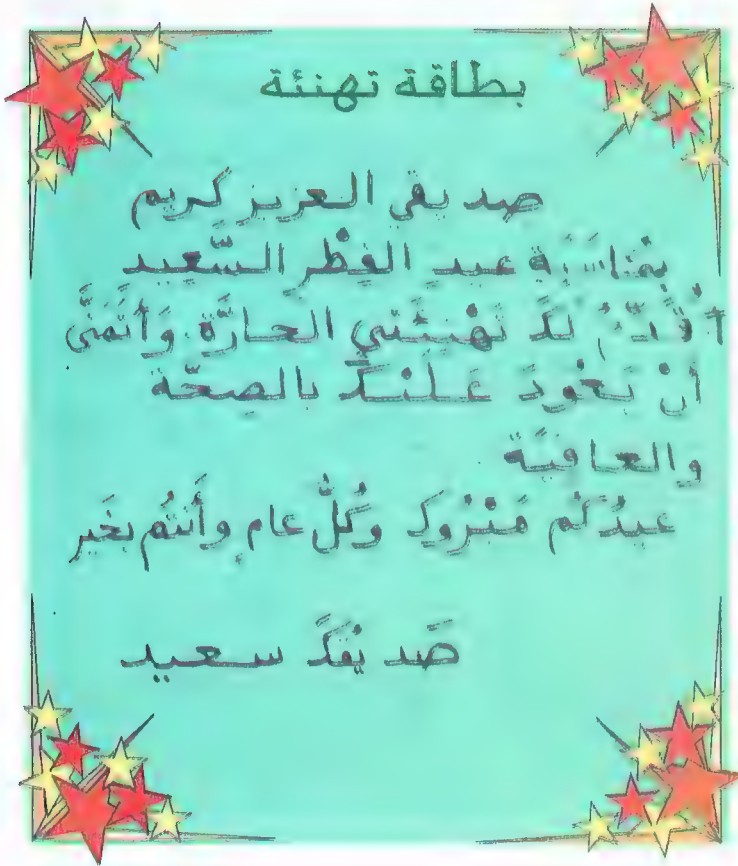 بطاقة تهنئة
صديقي العزيز كريم
بِمُنَاسَبَةِ عيدِ الفِطْرِ السَّعِيد
أُقَدِّمُ لَكَ تَهْنِئَتِي الحارَّة وَأَتَمَنَّى
أنْ يَعُودَ عَلَيْكَ بالصِحَّة
والعافيَة
عِيدُكُم مَبْرُوك وَكُلُّ عام وأَنْتُم بِخَير
صَديقُكَ سعيد